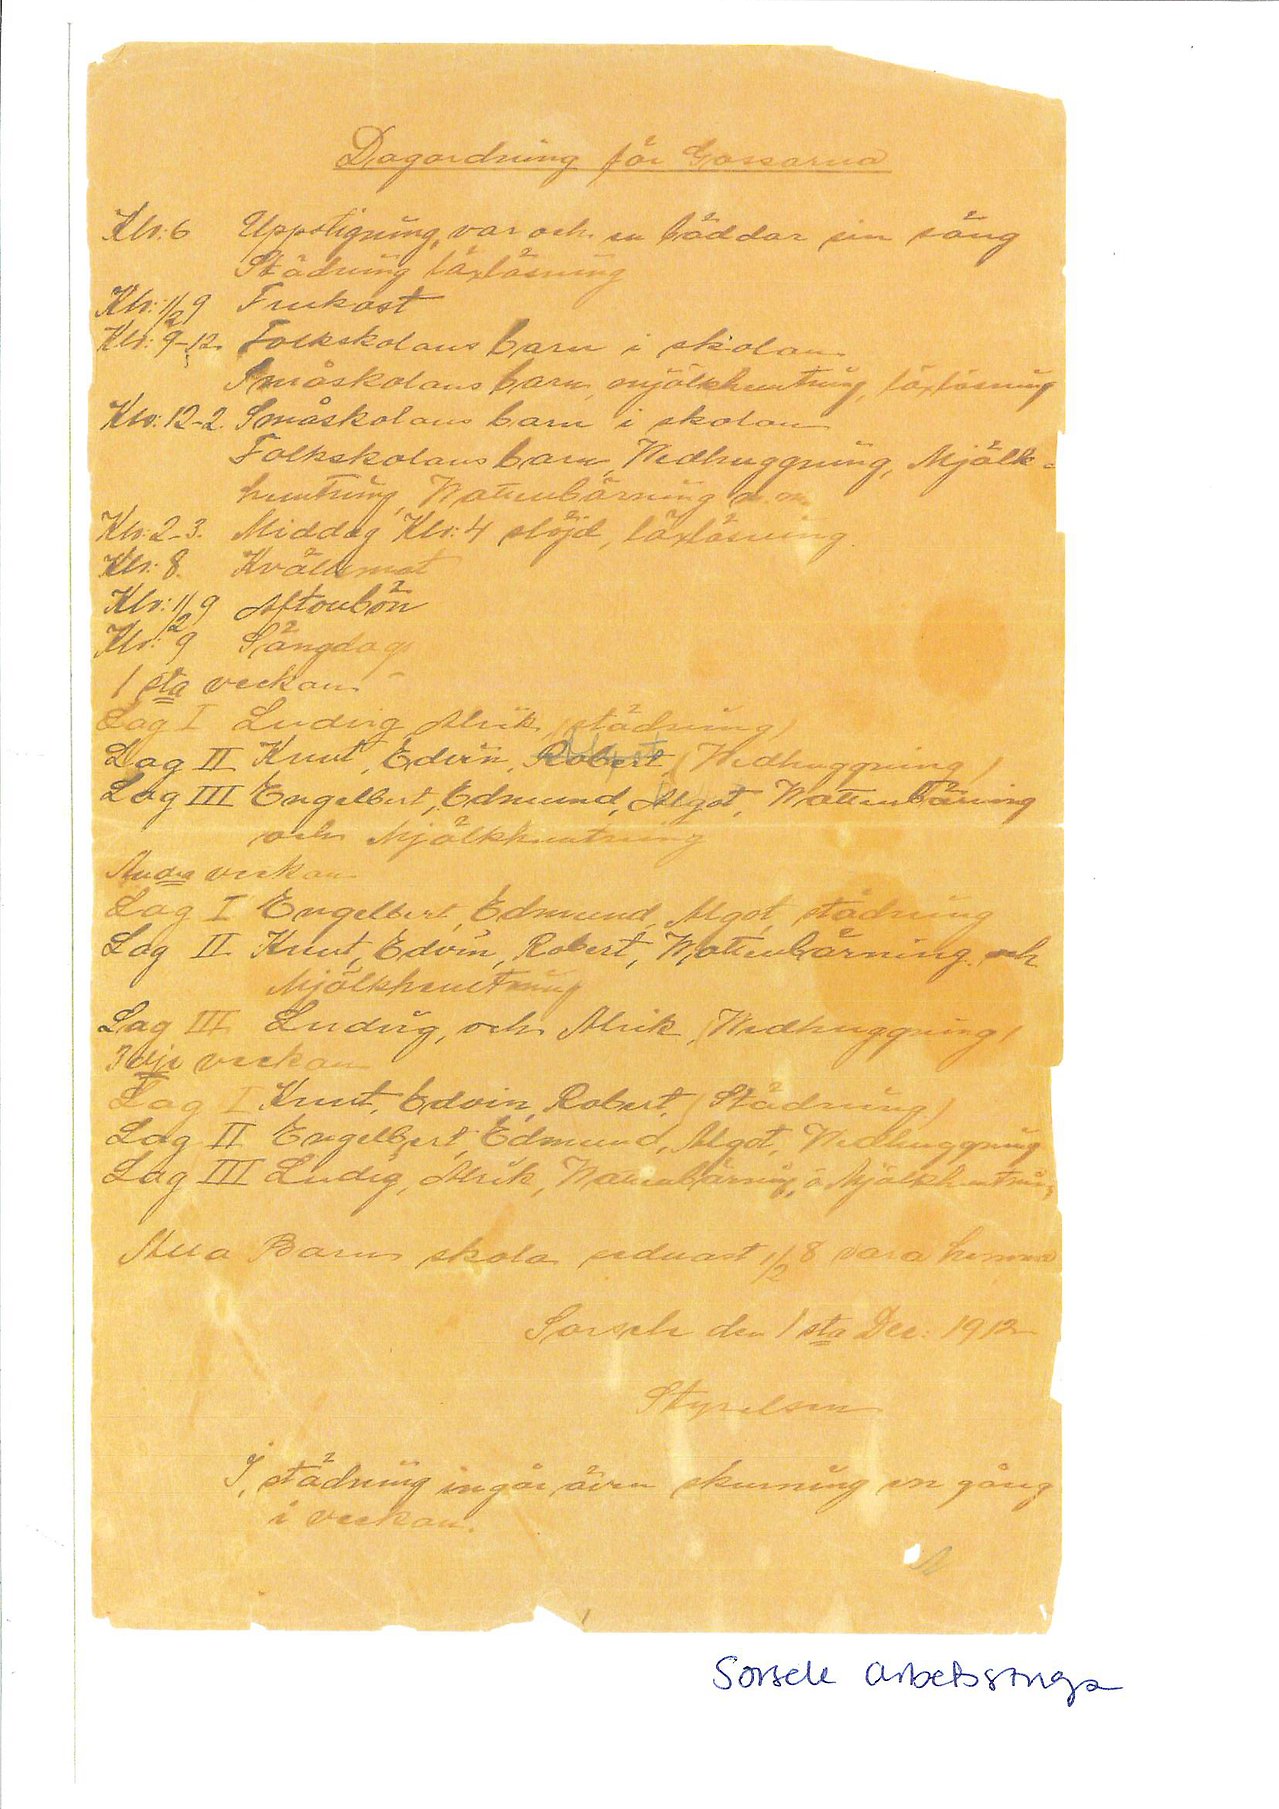 Dagordning för Gossarna
Klr: 6 Uppstigning, var och en bäddar sin säng
Städning läxläsning
Klr: 1/2 9 Frukost
Klr: 9-12. Folkskolans barn i skolan
Småskolans barn, mjölkhemtning, läxläsning
Klr: 12-2. Småskolans barn i skolan
Folkskolans barn, Vedhuggning, Mjölk=
hemtning, Vattenbärning m.m.
Klr: 2-3. Middag Klr: 4 slöjd, läxläsning.
Klr: 8. Kvällsmat
Klr: 1/2 9 Aftonbön
Klr: 9 Sängdags
1 sta veckan
Lag I Ludvig Alrik (städning)
Lag II Knut, Edvin, Robert, (Vedhuggning)
Lag III Engelbert, Edmund, Algot, Vattenbärning
och Mjölkhemtning
Andra veckan
Lag I Engelbert, Edmund, Algot, städning
Lag II Knut, Edvin, Robert, Vattenbärning och
Mjölkhemtning
Lag III Ludvig, och Alrik (Vedhuggning)
3dje veckan
Lag I Knut, Edvin, Robert, (Städning)
Lag II Engelbert, Edmund, Algot, Vedhuggning
Lag III Ludvig, Alrik, Vattenbärning, o Mjölkhemtning
Alla Barn skola senast 1/2 8 vara hemma
Sorsele den 1 sta Dec: 1912
Styrelsen
I, städning ingår även skurning en gång
i veckan.
Sorsele arbetsstuga